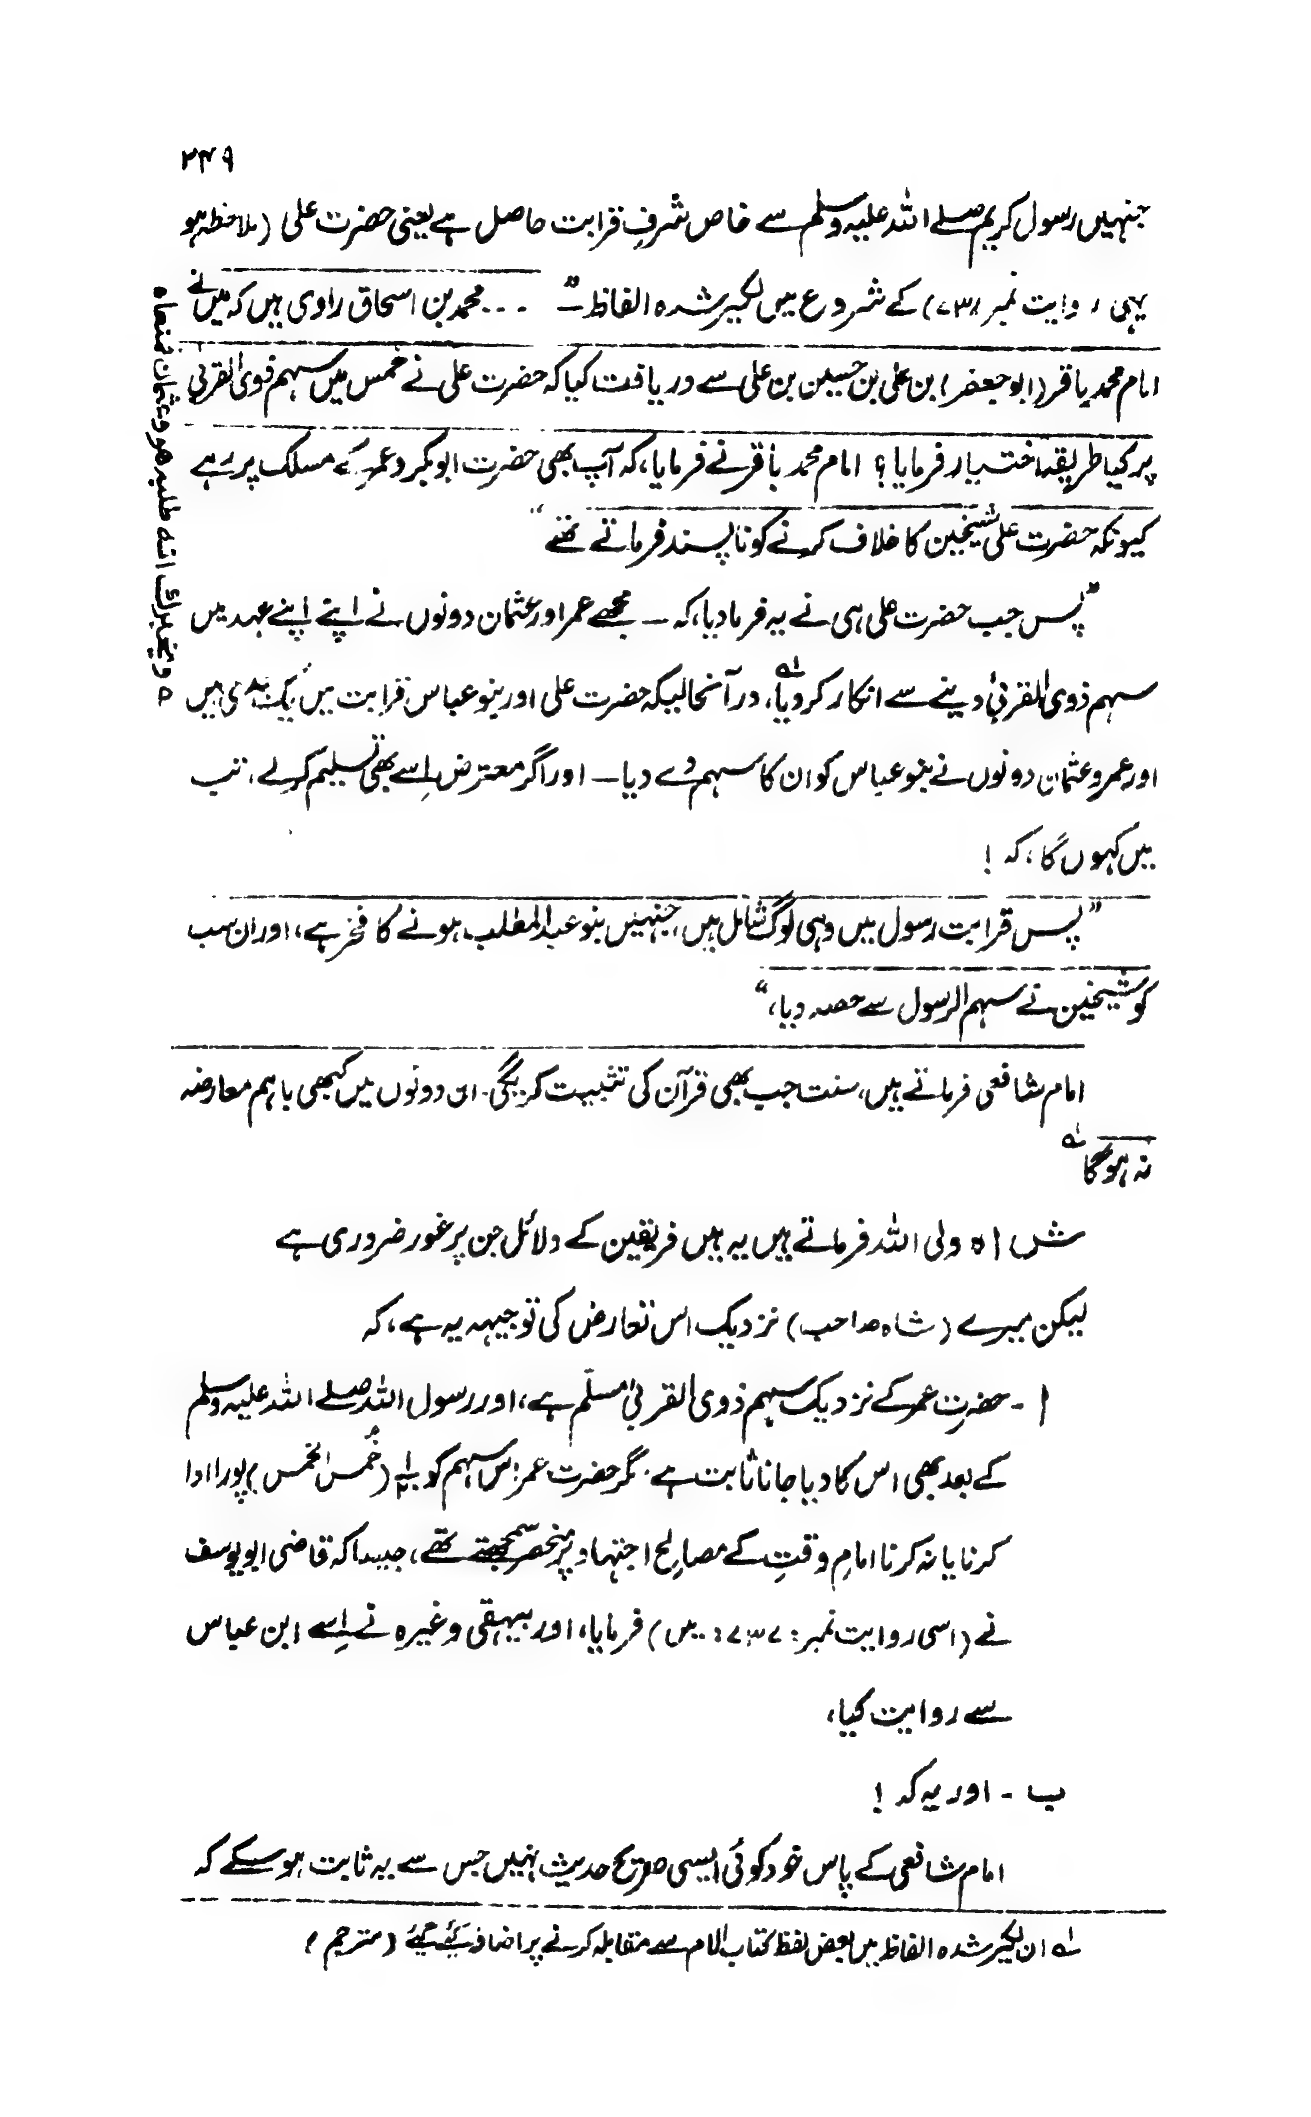 ۲۴۹
جنہیں رسول کریم صلے اللہ علیہ وسلم سے خاص شرفِ قرابت حاصل ہے یعنی حضرت علی (ملاحظہ ہو
یہی روایت نمبر ۷۳۸) کے شروع میں لکیر شدہ الفاظ ــ" ... محمد بن اسحاق راوی ہیں کہ میں نے
امام محمد باقر (ابو جعفر) بن علی بن حسین بن علی سے دریافت کیا کہ حضرت علی نے خمس میں سہم ذوی القربیٰ
پر کیا طریقہ اختیار فرمایا؟ امام محمد باقر نے فرمایا، کہ آپ بھی حضرت ابوبکر و عمر کے مسلک پر رہے
کیونکہ حضرت علی شیخین کا خلاف کرنے کو ناپسند فرماتے تھے"
"پس جب حضرت علی ہی نے یہ فرما دیا، کہ ــ مجھے عمر اور عثمان دونوں نے اپنے اپنے عہد میں
سہم ذوی القربیٰ دینے سے انکار کر دیا،لہ درآنحالیکہ حضرت علی اور بنو عباس قرابت میں یک جدی ہیں
اور عمر و عثمان دونوں نے بنو عباس کو ان کا سہم دے دیا ــ اور اگر معترض اِسے بھی تسلیم کر لے، تب
میں کہوں گا، کہ !
"پس قرابت رسول میں وہی لوگ شامل ہیں، جنہیں بنو عبدالمطلب ہونے کا فخر ہے، اور ان سب
کو شیخین نے سہم الرسول سے حصہ دیا،"
امام شافعی فرماتے ہیں، سنت جب بھی قرآن کی تثبیت کریگی۔ ان دونوں میں کبھی باہم معارضہ
نہ ہوگا لہ
شاہ ولی اللہ فرماتے ہیں یہ ہیں فریقین کے دلائل جن پر غور ضروری ہے
لیکن میرے (شاہ صاحب) نزدیک اس تعارض کی توجیہہ یہ ہے، کہ
ا - حضرتِ عمر کے نزدیک سہم ذوی القربیٰ مسلّم ہے، اور رسول اللہ صلے اللہ علیہ وسلم
کے بعد بھی اس کا دیا جانا ثابت ہے۔ مگر حضرت عمر اس سہم کو (خُمس الخمس) پورا ادا
کرنا یا نہ کرنا امامِ وقت کے مصالح اجتہاد پر منحصر سمجھتے تھے، جیسا کہ قاضی ابو یوسف
نے (اسی روایت نمبر: ۷۳۷: میں) فرمایا، اور بیہقی وغیرہ نے اِسے ابن عباس
سے روایت کیا،
ب - اور یہ کہ !
امام شافعی کے پاس خود کوئی ایسی صریح حدیث نہیں جس سے یہ ثابت ہو سکے کہ
لہ ان لکیر شدہ الفاظ میں بعض لفظ کتاب الام سے مقابلہ کرنے پر اضافہ کئے گئے (مترجم)